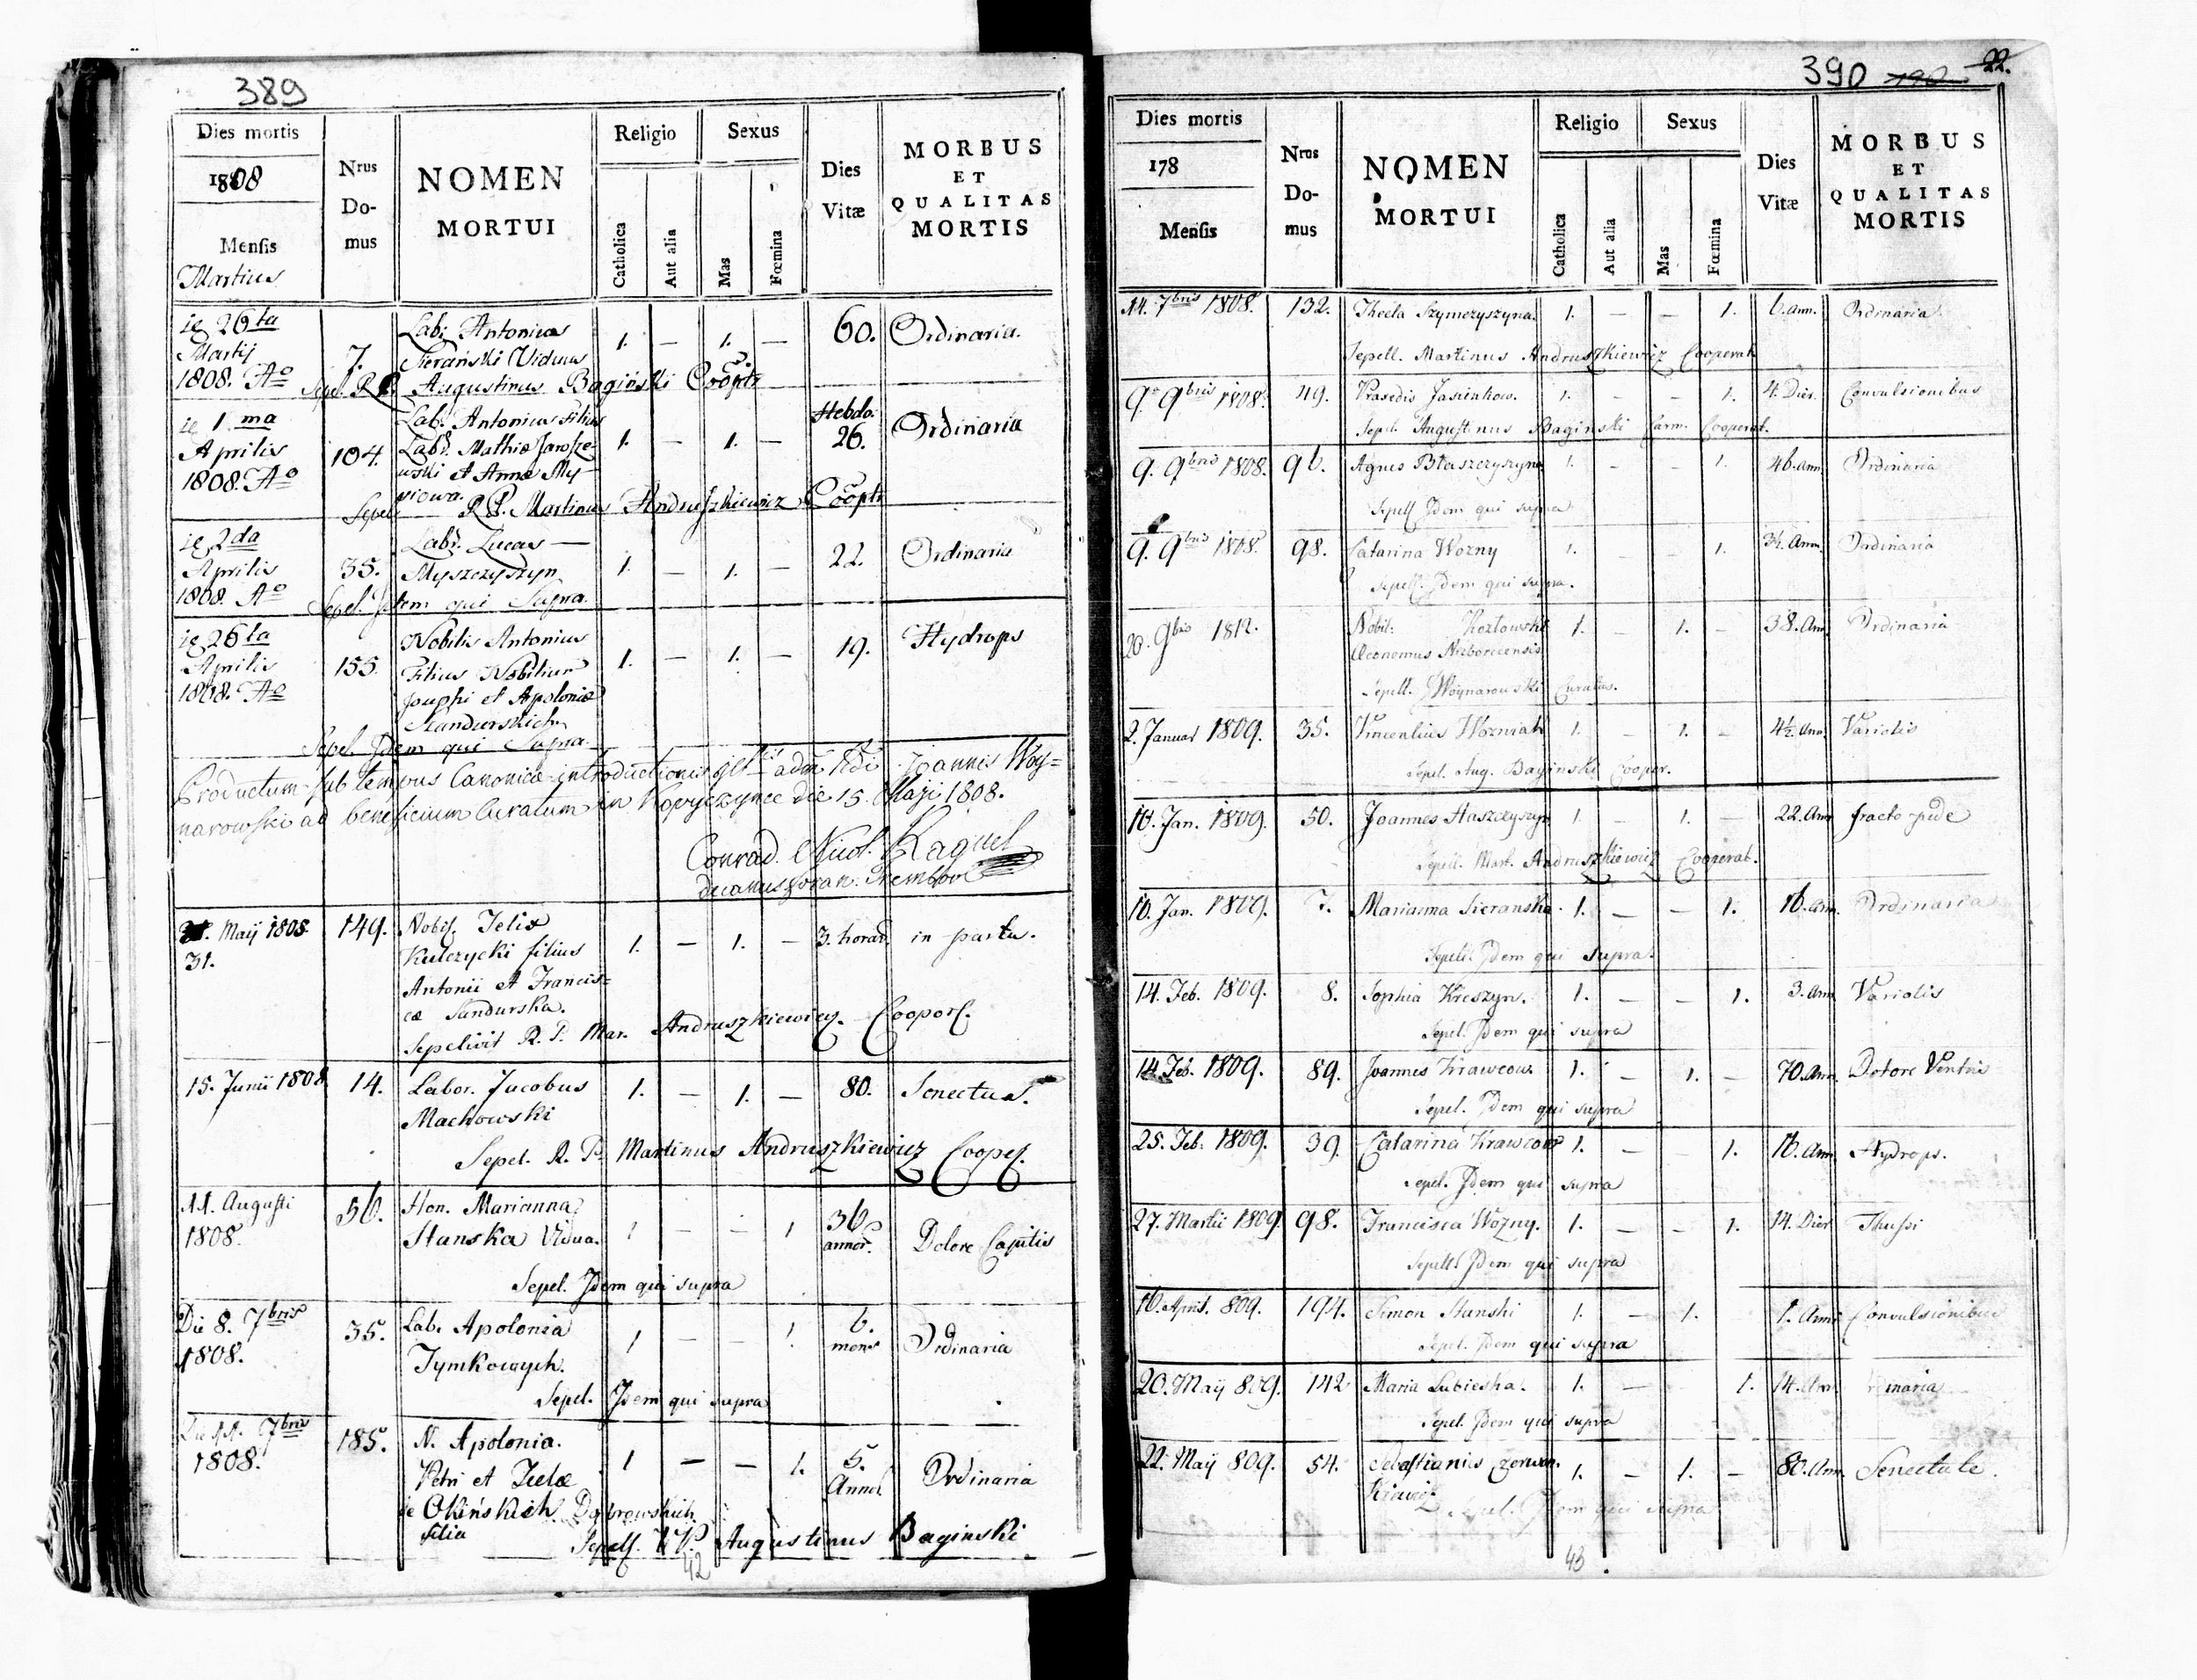 389
Dies mortis
1808
Mensis
Martius
Nrus
Do-
mus
NOMEN
MORTUI
Religio
Catholica
Aut alia
Sexus
Mas
Fœmina
Dies
Vitæ
MORBUS
ET
QUALITAS
MORTIS
ie 26ta
Martij
1808. Ao
7.
Lab: Antonius
Sierański Viduus
1. — 1. —
60.
Ordinaria.
Sepel. R. P. Augustinus Bagiński Cooptr
ie 1.ma
Aprilis
1808. Ao
104.
Lab. Antonius Filius
Lab. Mathiæ Jarosze-
wski et Annæ My-
1. — 1. —
Hebdo.
26.
Ordinaria
Sepel R. P. Martinus Andruszkiewicz Cooptr
ie 2da
Aprilis
1808. Ao
35.
Labr. Lucas —
Myszczyszyn
1. — 1. —
22.
Ordinaria
Sepel. Idem qui Supra.
ie 26ta
Aprilis
1808. Ao
155.
Nobilis Antonius
Filius Nobilium
Josephi et Apoloniæ
Sandurskich
1. — 1. —
19.
Hydrops
Sepel. Idem qui Supra.
Productum sub tempus Canonicæ introductionis adm Rdi Joannis Woy=
narowski ad beneficium Curatum in Kopyczynce die 15. Maji 1808.
Conrad. Nicol. Raquel
decanus foran. Trembov
31. Maij 1808.
31.
149.
Nobil. Felix
Kulczycki filius
Antonii et Francis=
cæ Sandurska.
1. — 1. —
3. horar.
in partu.
Sepelivit R. P. Mar. Andruszkiewicz. Cooper.
15. Junii 1808
14.
Labor. Jacobus
Machowski
1. — 1. —
80.
Senectus.
Sepel. R. P. Martinus Andruszkiewicz Cooper.
11. Augusti
1808.
56.
Hon. Marianna
Stanska Vidua.
1 — — 1
36
annor.
Dolore Capitis
Sepel. Idem qui supra
Die 8. 7bris
1808.
35.
Lab. Apolonia
Tymkowych.
1 — — 1.
6.
mens
Ordinaria
Sepel. Idem qui supra
Die 11. 7bris
1808.
185.
N. Apolonia.
Petri et Juliæ
de Okińskich Dąbrowskich
filia
1 — — 1.
5.
Annor.
Ordinaria
Sepel. Augustinus Baginski
42
390
22.
Dies mortis
178
Mensis
Nros
Do-
mus
NOMEN
MORTUI
Religio
Catholica
Aut alia
Sexus
Mas
Fœmina
Dies
Vitæ
MORBUS
ET
QUALITAS
MORTIS
11. 7bris 1808. 132. Thecla Szymczyszyna. 1. — — 1. 6. Ann. Ordinaria
Sepell. Martinus Andruszkiewicz Cooperat.
9. 9bris 1808. 49. Praxedis Jasienkow. 1. - - 1. 4. Dier. Convulsionibus
Sepel. Augustinus Baginski Carm. Cooperat.
9. 9bris 1808. 96. Agnes Błaszczyszyna 1. - - 1. 46. Ann. Ordinaria
Sepell Idem qui supra
9. 9bris 1808. 98. Catarina Wozny 1. - 1. Ann. Ordinaria
Sepell. Idem qui supra.
20. 9bris 1812. Nobil: Kozłowski 1. — 1. - 38. Ann. Ordinaria
Œconomus
Sepell. J. Woynarowski Curatus.
2. Januar 1809. 35. Vincentius Wozniak 1. - 1. - 4½. Ann. Variolis
Sepel. Aug. Baginski Cooper.
10. Jan. 1809. 50. Joannes Staszczyszyn 1. - 1. - 22. Ann fracto pede
Sepell. Mart. Andruszkiewicz Cooperat.
16. Jan. 1809. 7. Marianna Sieranska. 1. — - 1. 16. Ann. Ordinaria
Sepeli Idem qui supra.
14. Feb. 1809. 8. Sophia Kreszyn. 1. — - 1. 3. Ann Variolis
Sepel. Idem qui supra
14. Feb. 1809. 89. Joannes Krawcow 1. — 1. - 70. Ann. Dolore Ventris
Sepel. Idem qui supra
25. Feb. 1809. 39. Catarina Krawcow 1. — - 1. 16. Ann Hydrops.
Sepel. Idem qui supra
27. Martii 1809 98. Francisca Wozny. 1. — - 1. 14. Dier Thussi
Sepell Idem qui supra
16. April. 809. 194. Simon Stanski 1. — 1. 1. Anni Convulsionibus
Sepel. Idem qui supra
20. Maij 809. 142 Maria Subieska. 1. — 1. 14. Ann
Sepel. Idem qui supra
22. Maij 809. 54. Sebastianus Czerwon.
kiewicz 1. — 1. - 80. Ann. Senectute.
Sepel. Idem qui supra
43